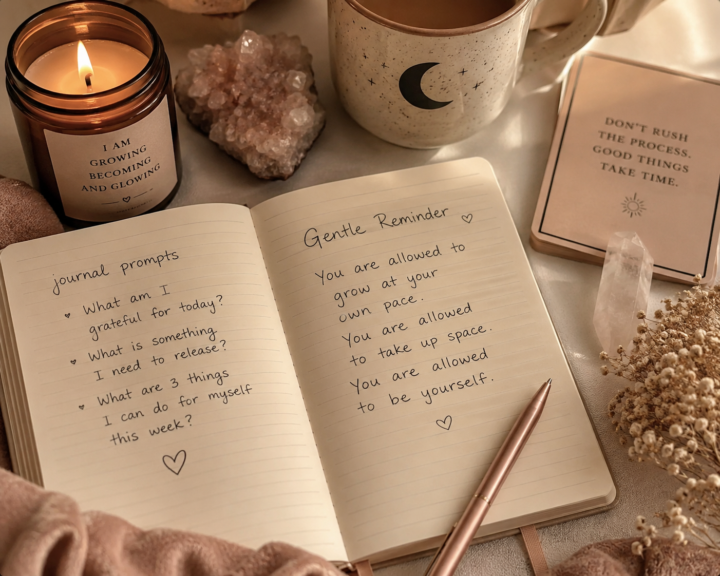 I AM
GROWING
BECOMING
AND GLOWING
DON'T RUSH
THE PROCESS.
GOOD THINGS
TAKE TIME.
journal prompts
What am I
grateful for today?
What is something
I need to release?
What are 3 things
I can do for myself
this week?
Gentle Reminder
You are allowed to
grow at your
own pace.
You are allowed
to take up space.
You are allowed
to be yourself.